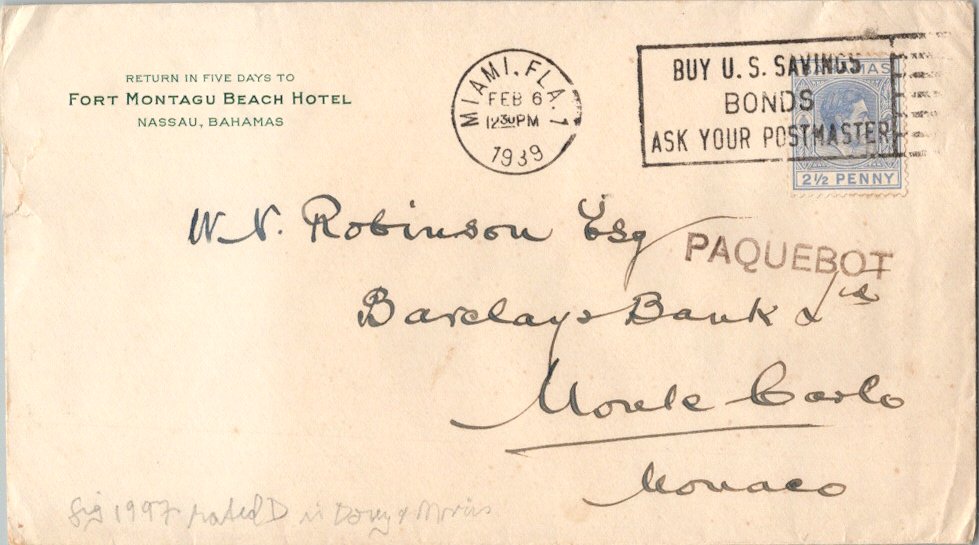 RETURN IN FIVE DAYS TO
FORT MONTAGU BEACH HOTEL
NASSAU, BAHAMAS
MIAMI, FLA. 1
FEB 6
12 30 PM
1939
BUY U. S. SAVINGS
BONDS
ASK YOUR POSTMASTER
BAHAMAS
2½ PENNY
W. N. Robinson Esq
PAQUEBOT
Barclays Bank Ltd
Monte Carlo
Monaco
fig 1997 rated D in